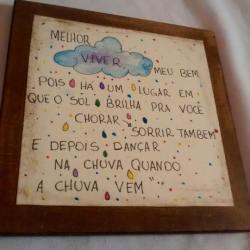 MELHOR
VIVER MEU BEM
POIS HÁ UM LUGAR EM
QUE O SOL BRILHA PRA VOCÊ
CHORAR, SORRIR TAMBEM
E DEPOIS DANÇAR
NA CHUVA QUANDO
A CHUVA VEM""